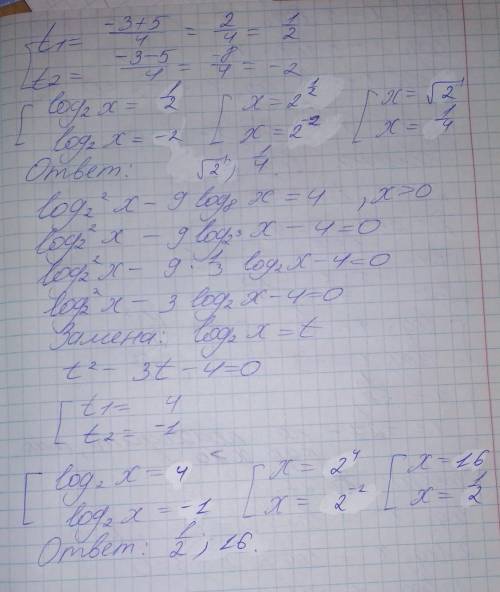 t1 = (-3+5)/4 = 2/4 = 1/2
t2 = (-3-5)/4 = -8/4 = -2
[ log₂ x = 1/2 [ x = 2^(1/2) [ x = √2
log₂ x = -2 x = 2^(-2) x = 1/4
Ответ: √2; 1/4.
log₂² x - 9 log₈ x = 4 , x>0
log₂² x - 9 log₂³ x - 4=0
log₂² x - 9 · 1/3 log₂ x - 4=0
log₂² x - 3 log₂ x - 4=0
Замена: log₂ x = t
t² - 3t - 4=0
[ t1 = 4
t2 = -1
[ log₂ x = 4 [ x = 2⁴ [ x = 16
log₂ x = -1 x = 2⁻¹ x = 1/2
Ответ: 1/2; 16.